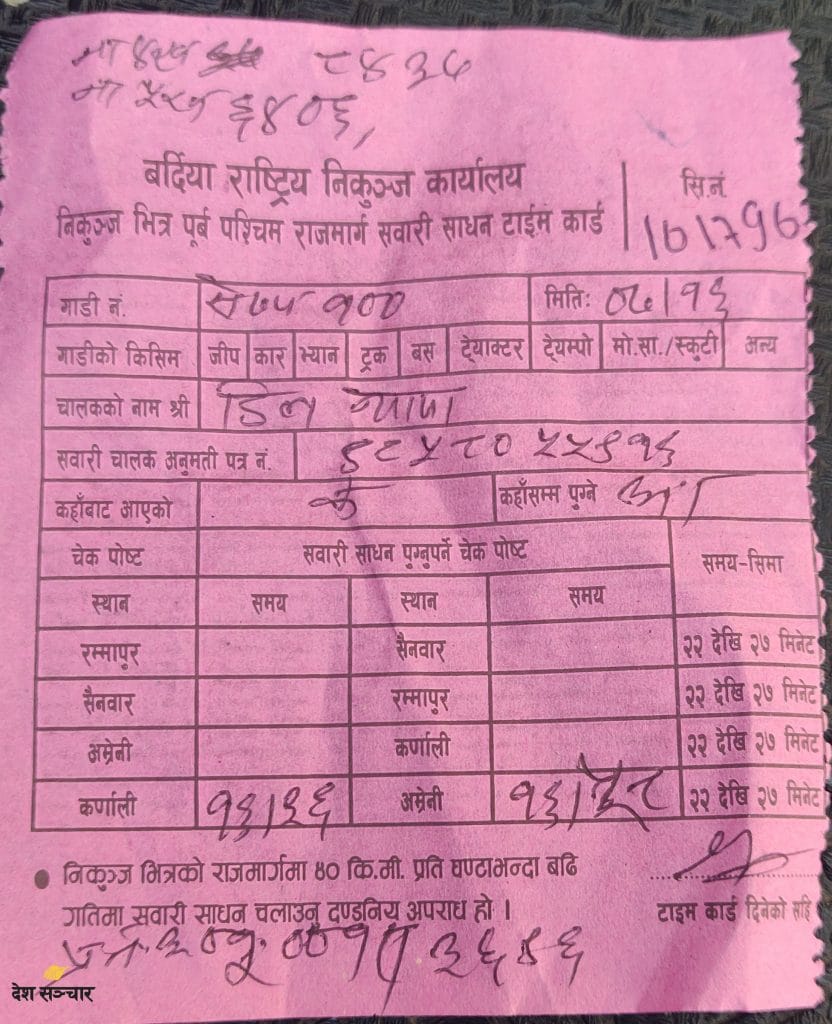 ८४३६
६४०६,
बर्दिया राष्ट्रिय निकुञ्ज कार्यालय
सि.नं
निकुञ्ज भित्र पूर्ब पश्चिम राजमार्ग सवारी साधन टाईम कार्ड
101796
गाडी नं. १०० मितिः ०६।१६
गाडीको किसिम जीप कार भ्यान ट्रक बस ट्रेयाक्टर ट्रेयम्पो मो.सा./स्कुटी अन्य
चालकको नाम श्री डिल
सवारी चालक अनुमती पत्र नं.
कहाँबाट आएको क कहाँसम्म पुग्ने
चेक पोष्ट सवारी साधन पुग्नुपर्ने चेक पोष्ट समय-सिमा
स्थान समय स्थान समय
रम्मापुर सैनवार २२ देखि २७ मिनेट
सैनवार रम्मापुर २२ देखि २७ मिनेट
अम्रेनी कर्णाली २२ देखि २७ मिनेट
कर्णाली १६।३६ अम्रेनी १६। २२ देखि २७ मिनेट
निकुञ्ज भित्रको राजमार्गमा ४० कि.मी. प्रति घण्टाभन्दा बढि
गतिमा सवारी साधन चलाउनु दण्डनिय अपराध हो ।
टाइम कार्ड दिनेको सहि
देश सञ्चार